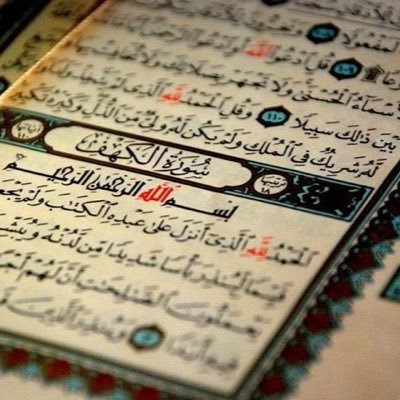 لَمَفْعُولًا
قُلِ ادْعُوا اللَّهَ أَوِ ادْعُوا الرَّحْمَٰنَ
الْأَسْمَاءُ الْحُسْنَىٰ وَلَا تَجْهَرْ بِصَلَاتِكَ وَلَا تُخَافِتْ بِهَا
بَيْنَ ذَٰلِكَ سَبِيلًا ١١٠ وَقُلِ الْحَمْدُ لِلَّهِ الَّذِي لَمْ يَتَّخِذْ وَلَدًا
لَّهُ شَرِيكٌ فِي الْمُلْكِ وَلَمْ يَكُن لَّهُ وَلِيٌّ مِّنَ الذُّلِّ وَكَبِّرْهُ تَكْبِ
سُورَةُ الْكَهْفِ
بِسْمِ اللَّهِ الرَّحْمَٰنِ الرَّحِيمِ
الْحَمْدُ لِلَّهِ الَّذِي أَنزَلَ عَلَىٰ عَبْدِهِ الْكِتَٰبَ وَلَمْ يَجْعَل
قَيِّمًا لِّيُنذِرَ بَأْسًا شَدِيدًا مِّن لَّدُنْهُ وَيُبَشِّ
يَعْمَلُونَ الصَّٰلِحَٰتِ أَنَّ لَهُمْ أَجْ
فِيهِ أَبَدًا ٣ وَيُنذِرَ الَّذِينَ